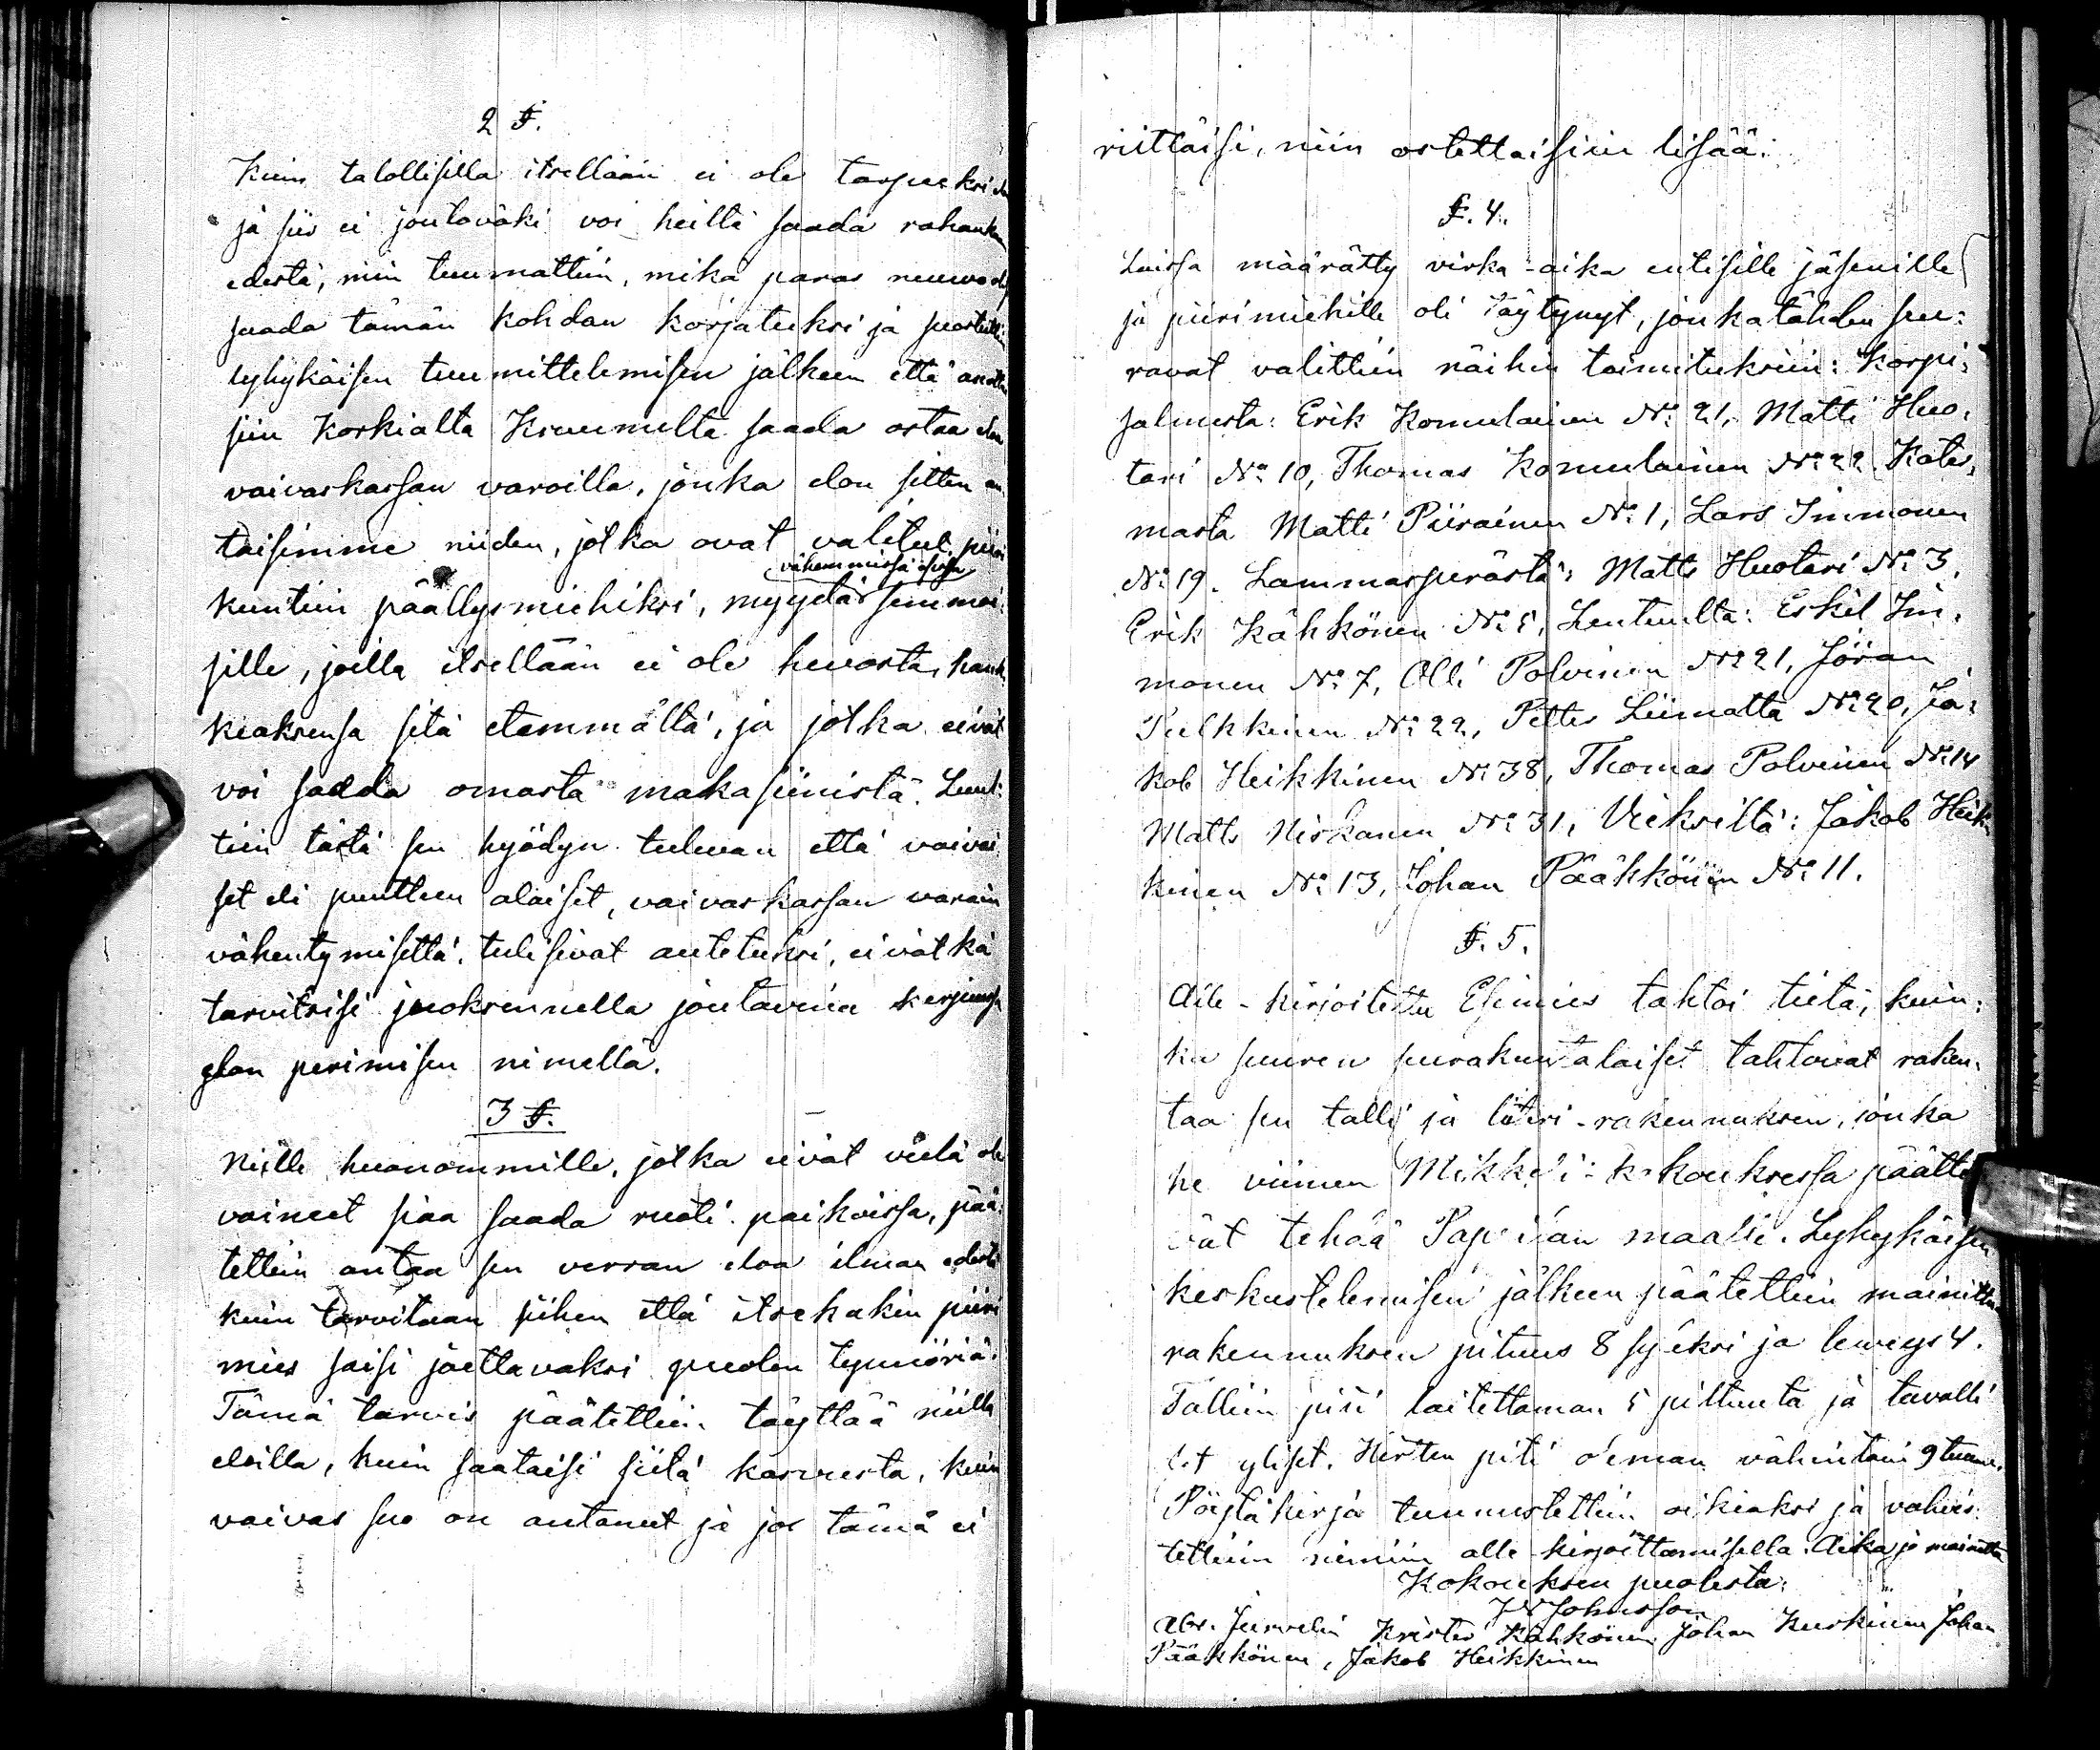 2 §.
Kuin talollisilla itsellään ei ole tarpeeksi
ja siis ei joutoväki voi heiltä saada rahankan
edestä, niin tuumattiin, mikä paras neuvo olisi
saada tämän kohdan korjatuksi ja suostuttiin
lyhykäisen tuumittelemisen jälkeen että anottai
siin Korkialta Kruunulta saada ostaa eloa
vaivaskassan varoilla, jonka elon sitten an
taisimme niiden, jotka ovat valitut piiri
vähemmissä osissa
kuntiin päällysmiehiksi, myydä semmoi
sille, joilla itsellään ei ole hevosta, hank
kiaksensa sitä etemmältä, ja jotka eivät
voi saada omasta makasiinista. Luul:
tiin tästä sen hyödyn tulevan että vaivai
set eli puutteen alaiset, vaivaskassan varain
vähentymisettä, tulisivat autetuksi, eivätkä
tarvitsisi juoksennella joutavina kerjuussa
elon perimisen nimellä.
3 §.
Niille huonommille, jotka eivät vielä ole
voineet siaa saada ruoti paikoissa, pää:
tettiin antaa sen verran eloa ilman edestä
kuin tarvitaan siihen että itsekukin piiri
mies saisi jaettavaksi puolen tynnöriä.
Tämä tarvis päätettiin täyttää niillä
eloilla, kuin saataisi siitä kasvusta, kuin
vaivas suo on antanut ja jos tämä ei
riittäisi, niin ostettaisiin lisää.
§. 4.
Laissa määrätty virka-aika entisille jäsenille
ja piirimiehille oli täytynyt, jonkatähden seu:
raavat valittiin näihin toimituksiin: Korpi:
salmesta: Erik Komulainen No 21, Matti Huo:
tari No 10, Thomas Komulainen No 22 Kate:
masta Matti Piirainen No 1, Lars Immonen
No 19. Lammasperästä: Matts Huotari No 3,
Erik Kähkönen No 5, Lentuulta: Eskil Im:
monen No 7, Olli Polvinen No 21, Jöran
Pulkkinen No 22, Petter Liimatta No 20, Ja:
kob Heikkinen No 38, Thomas Polvinen No 14
Matts Niskanen No 31, Vieksiltä: Jakob Heik
kinen No 13, Johan Pääkkönen No 11.
§. 5.
Alle-kirjoitettu Esimies tahtoi tietä, kuin:
ka suuren seurakuntalaiset tahtovat raken:
taa sen talli ja liiteri-rakennuksen, jonka
he viimen Mikkeli-kokouksessa päätti
vät tehdä Pappilan maalle. Lyhykäisen
keskustelemisen jälkeen päätettiin mainittu
rakennuksen pituus 8 syleksi ja leveys 4.
Talliin piti laitettaman 5 pilttuuta ja tavalli
set yliset. Hirten piti oleman vähintäin 9 tuum.
Pöytäkirja tunnustettiin oikiaksi ja vahvis:
tettiin nimiin alle kirjoittamisella. Aika ja mainittu
Kokouksen puolesta:
J W Johnsson
Abr. Jurvelin Krister Kähkönen Johan Keskinen Johan
Pääkkönen, Jakob Heikkinen